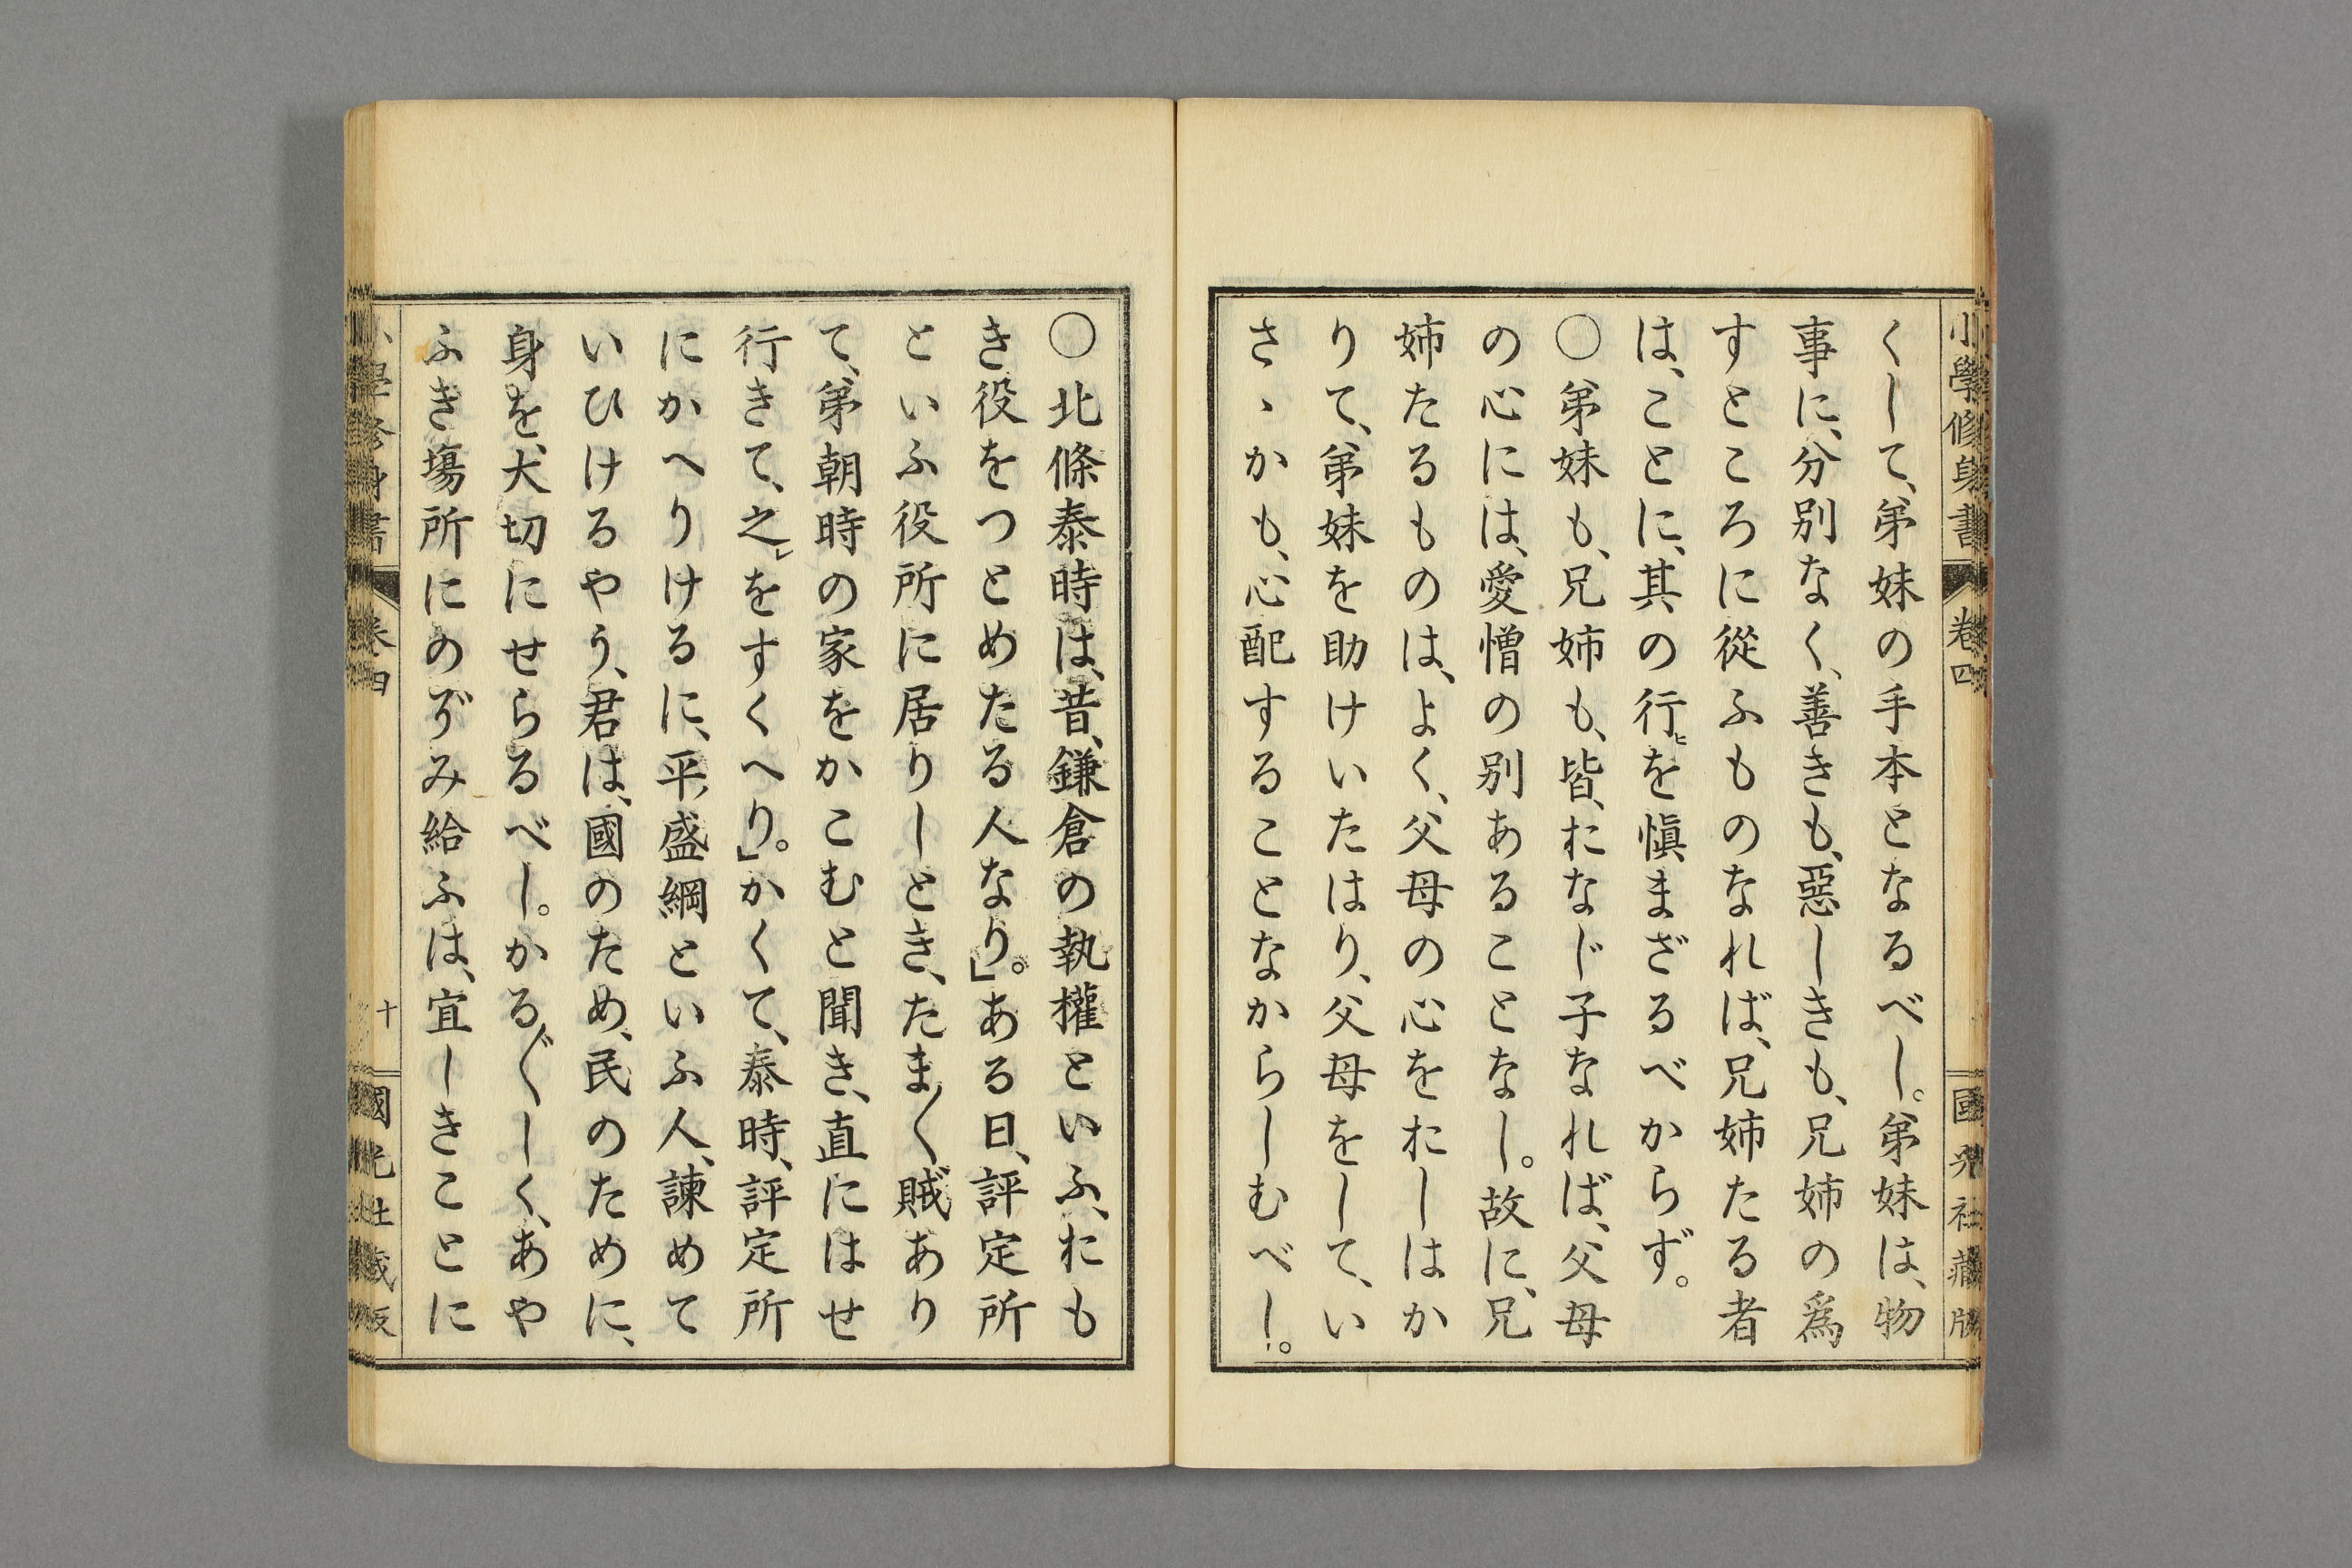 小學修身書 卷四 國光社藏版
くして、弟妹の手本となるべし。弟妹は、物
事に、分別なく、善きも、惡しきも、兄姉の爲
すところに從ふものなれば、兄姉たる者
は、ことに、其の行ヒを愼まざるべからず。
〇弟妹も、兄姉も、皆、おなじ子なれば、父母
の心には、愛憎の別あることなし。故に、兄
姉たるものは、よく、父母の心をおしはか
りて、弟妹を助けいたはり、父母をして、い
さゝかも、心配することなからしむべし。
〇北條泰時は、昔、鎌倉の執權といふ、おも
き役をつとめたる人なり。」ある日、評定所
といふ役所に居りしとき、たま〱賊あり
て、弟朝時の家をかこむと聞き、直にはせ
行きて、之レをすくへり。」かくて、泰時、評定所
にかへりけるに、平盛綱といふ人、諫めて
いひけるやう、君は、國のため、民のために、
身を、大切にせらるべし。かる〲しく、あや
ふき塲所にのぞみ給ふは、宜しきことに
小學修身書 卷四 十 國光社藏版